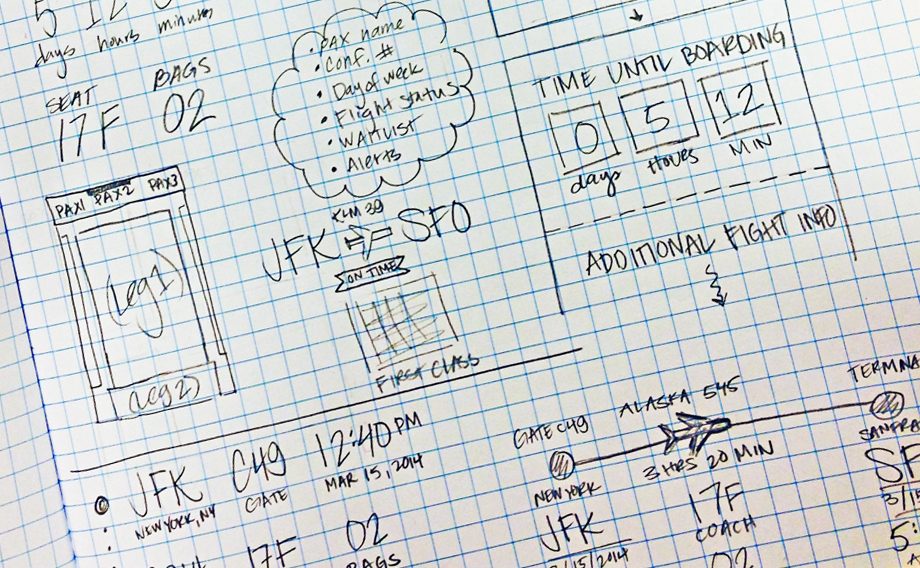 days hours minutes
SEAT
17F
BAGS
02
• PAX name
• Conf. #
• Day of week
• Flight status
• WAITLIST
• Alerts
TIME UNTIL BOARDING
0 5 12
days HOURS MIN
ADDITIONAL FIGHT INFO
PAX1 PAX2 PAX3
(Leg 1)
(Leg 2)
KLM 39
JFK SFO
ON TIME
FIRST CLASS
JFK C49 12:40 PM
NEW YORK, NY GATE MAR 15, 2014
17F 02
BAGS
GATE C49 ALASKA 545 TERMINA
3 HRS 20 MIN
NEW YORK SANFRA
JFK 17F SF
COACH 3/15
3/15/2014 02 5: